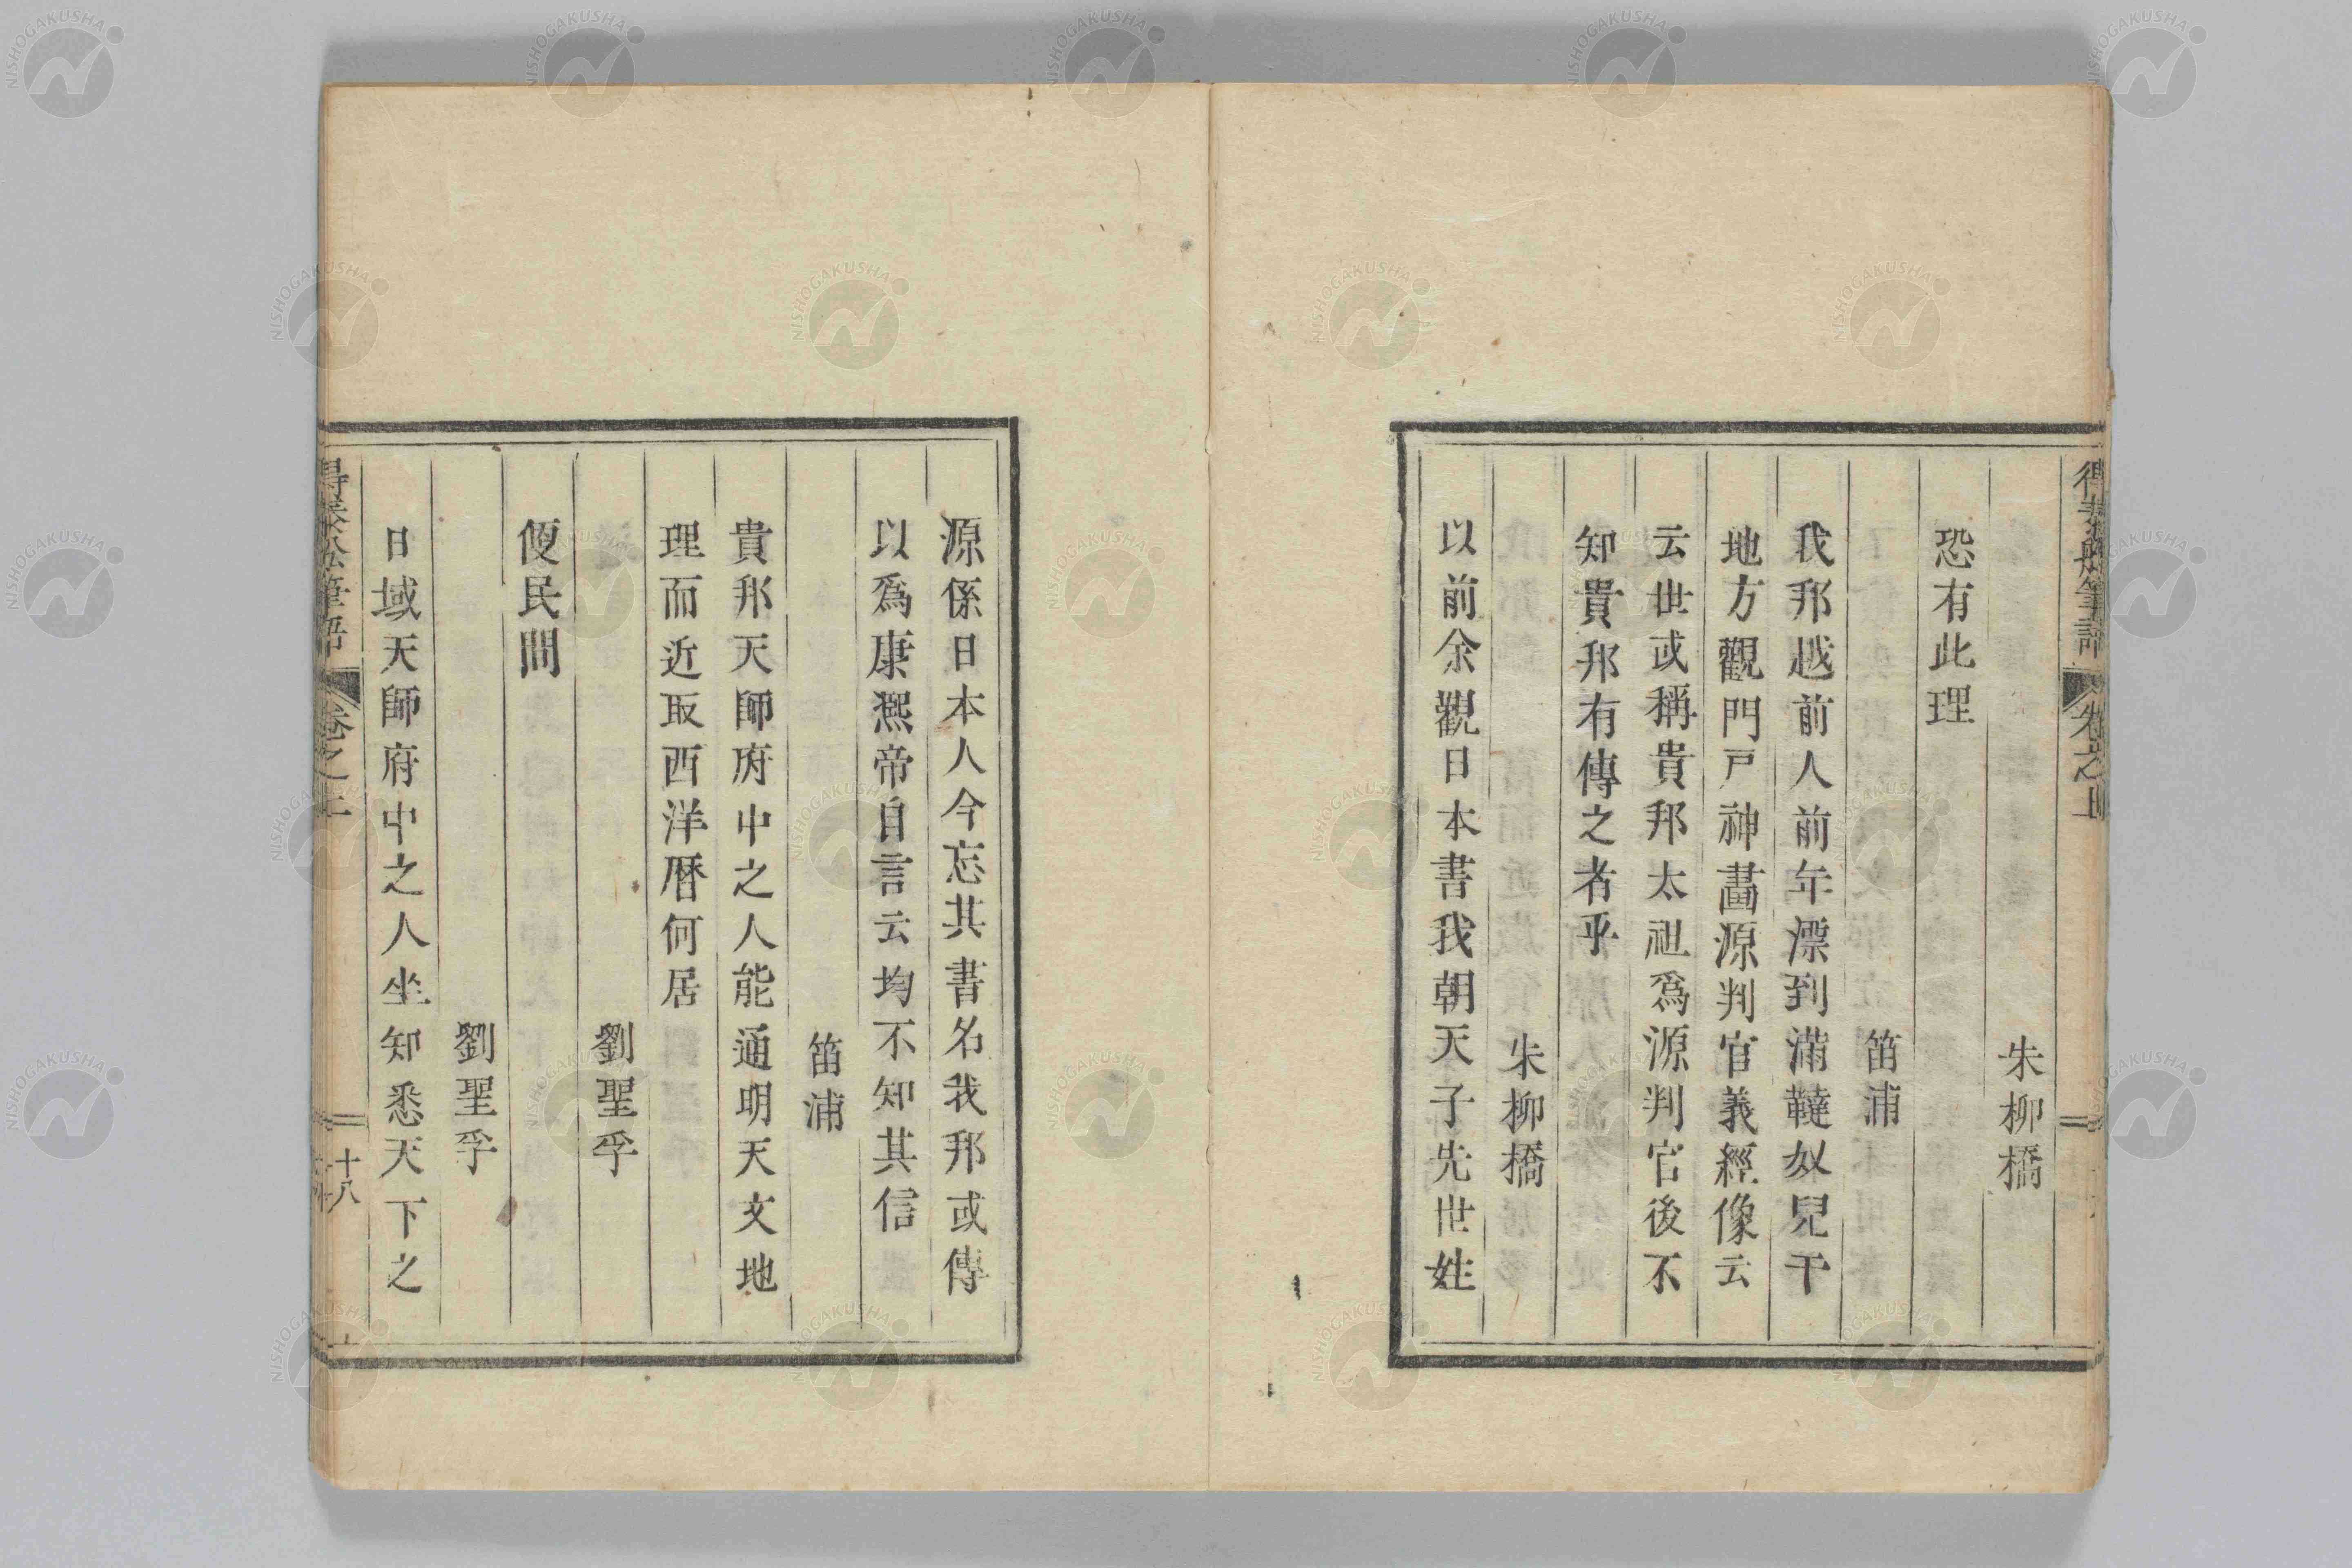 朱柳橋
恐有此理
笛浦
我邦越前人前年漂到滿韃奴兒干
地方觀門戸神畫源判官義經像云
云世或稱貴邦太祖爲源判官後不
知貴邦有傳之者乎
朱柳橋
以前余觀日本書我朝天子先世姓
源係日本人今忘其書名我邦或傳
以爲康熙帝自言云均不知其信
笛浦
貴邦天師府中之人能通明天文地
理而近取西洋暦何居
劉聖孚
便民間
劉聖孚
日域天師府中之人坐知悉天下之
十八
NISHOGAKUSHA